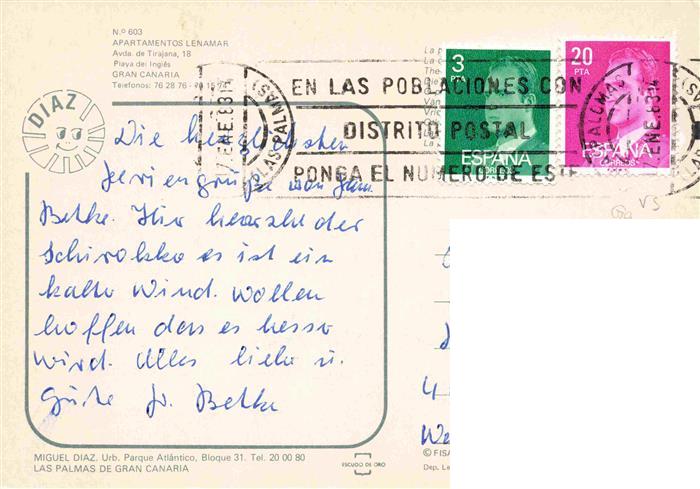 N.º 603
APARTAMENTOS LENAMAR
Avda. de Tirajana, 18
Playa del Inglés
GRAN CANARIA
Telefonos: 76 28 76 -
DIAZ
LAS PALMAS
ENE. 83
EN LAS POBLACIONES CON
DISTRITO POSTAL
PONGA EL NUMERO DE ESTE
3
PTA
ESPAÑA
CORREOS
20
PTA
ESPAÑA
CORREOS
PALOMAS
ENE. 83
VS
Die herzlichsten
Feriengrüße von Fam.
Betke. Hier herrscht der
Schirokko es ist ein
kalter Wind. Wollen
hoffen das es besser
wird. Alles liebe u.
Gute Fr. Betke
4
We
MIGUEL DIAZ. Urb. Parque Atlántico, Bloque 31. Tel. 20 00 80
LAS PALMAS DE GRAN CANARIA
ESCUDO DE ORO
© FISA
Dep. Le